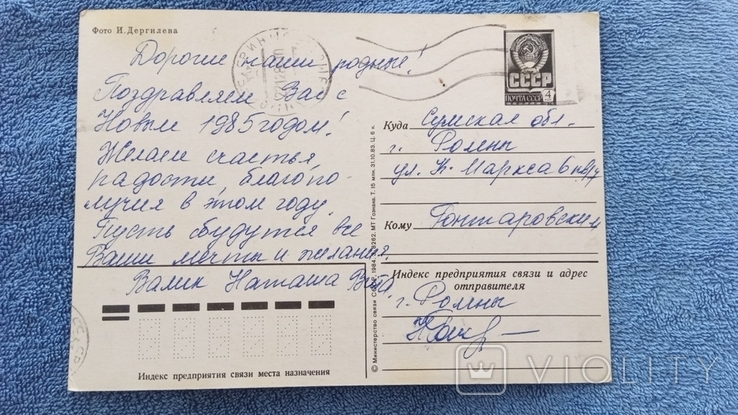 Фото И. Дергилева
Дорогие наши родные!
Поздравляем Вас с
Новым 1985 годом!
Желаем счастья,
радости, благопо-
лучия в этом году.
Пусть сбудутся все
Ваши мечты и желания.
Валик Наташа
СССР
ПОЧТА СССР
4
Куда Сумская обл.
г. Ромны
ул. К. Маркса
Кому Гонтаровским
Индекс предприятия связи и адрес
отправителя
г. Ромны
Индекс предприятия связи места назначения
© Министерство связи СССР, 1984. МТ Гознака. Т. 15 млн. 31.10.83. Ц. 6 к.
VIOLITY